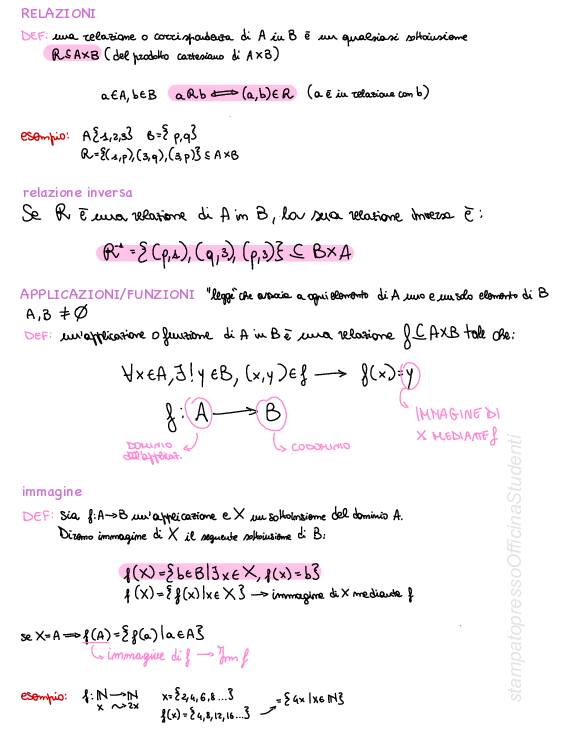 RELAZIONI
DEF: una relazione o corrispondenza di A in B è un qualsiasi sottoinsieme
R⊆A×B (del prodotto cartesiano di A×B)
a∈A, b∈B aRb ⟺ (a,b)∈R (a è in relazione con b)
esempio: A{1,2,3} B={p,q}
R={(1,p),(3,q),(3,p)} ⊆ A×B
relazione inversa
Se R è una relazione di A in B, la sua relazione inversa è:
R⁻¹={(p,1),(q,3),(p,3)} ⊆ B×A
APPLICAZIONI/FUNZIONI "legge" che associa a ogni elemento di A uno e un solo elemento di B
A,B ≠ ∅
DEF: un'applicazione o funzione di A in B è una relazione f⊆A×B tale che:
∀x∈A, ∃! y∈B, (x,y)∈f ⟶ f(x)=y
f: A ⟶ B
IMMAGINE DI
X MEDIANTE f
DOMINIO
dell'applicaz.
CODOMINIO
immagine
DEF: Sia f:A→B un'applicazione e X un sottoinsieme del dominio A.
Diremo immagine di X il seguente sottoinsieme di B:
f(X)={b∈B|∃x∈X, f(x)=b}
f(X)={f(x)|x∈X} → immagine di X mediante f
se X=A ⟹ f(A)={f(a)|a∈A}
immagine di f → Im f
esempio: f: ℕ→ℕ X={2,4,6,8...} ={4x|x∈ℕ}
x ⤳ 2x f(x)={4,8,12,16...}
stampatopressoOfficinaStudenti